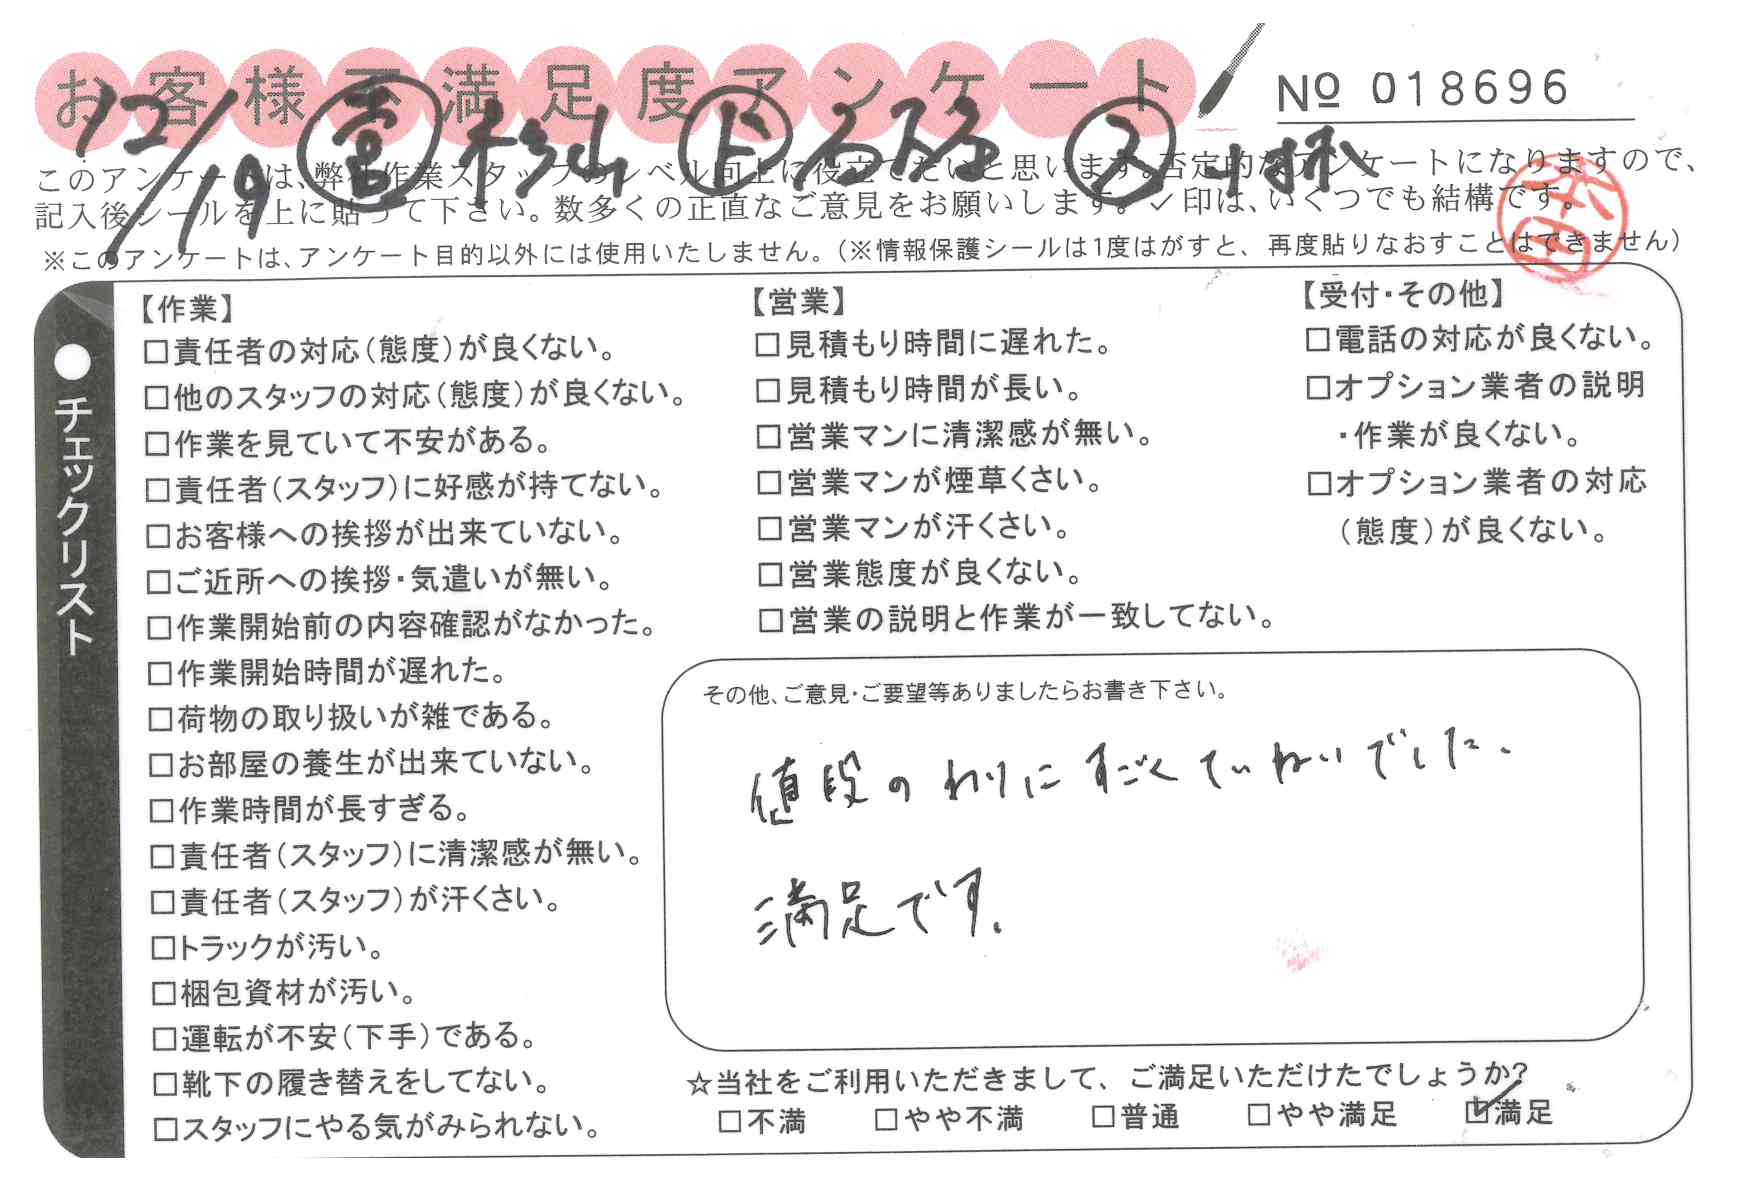 お客様不満足度アンケート
№ 018696
12/19 営 杉山 ド 名 ス 小林
このアンケートは、弊社作業スタッフのレベル向上に役立てたいと思います。否定的なアンケートになりますので、
記入後シールを上に貼って下さい。数多くの正直なご意見をお願いします。✓印は、いくつでも結構です。
※このアンケートは、アンケート目的以外には使用いたしません。(※情報保護シールは1度はがすと、再度貼りなおすことはできません)
●チェックリスト
【作業】
□責任者の対応(態度)が良くない。
□他のスタッフの対応(態度)が良くない。
□作業を見ていて不安がある。
□責任者(スタッフ)に好感が持てない。
□お客様への挨拶が出来ていない。
□ご近所への挨拶・気遣いが無い。
□作業開始前の内容確認がなかった。
□作業開始時間が遅れた。
□荷物の取り扱いが雑である。
□お部屋の養生が出来ていない。
□作業時間が長すぎる。
□責任者(スタッフ)に清潔感が無い。
□責任者(スタッフ)が汗くさい。
□トラックが汚い。
□梱包資材が汚い。
□運転が不安(下手)である。
□靴下の履き替えをしてない。
□スタッフにやる気がみられない。
【営業】
□見積もり時間に遅れた。
□見積もり時間が長い。
□営業マンに清潔感が無い。
□営業マンが煙草くさい。
□営業マンが汗くさい。
□営業態度が良くない。
□営業の説明と作業が一致してない。
【受付・その他】
□電話の対応が良くない。
□オプション業者の説明
・作業が良くない。
□オプション業者の対応
(態度)が良くない。
その他、ご意見・ご要望等ありましたらお書き下さい。
値段のわりにすごくていねいでした。
満足です。
☆当社をご利用いただきまして、ご満足いただけたでしょうか?
□不満 □やや不満 □普通 □やや満足 ☑満足